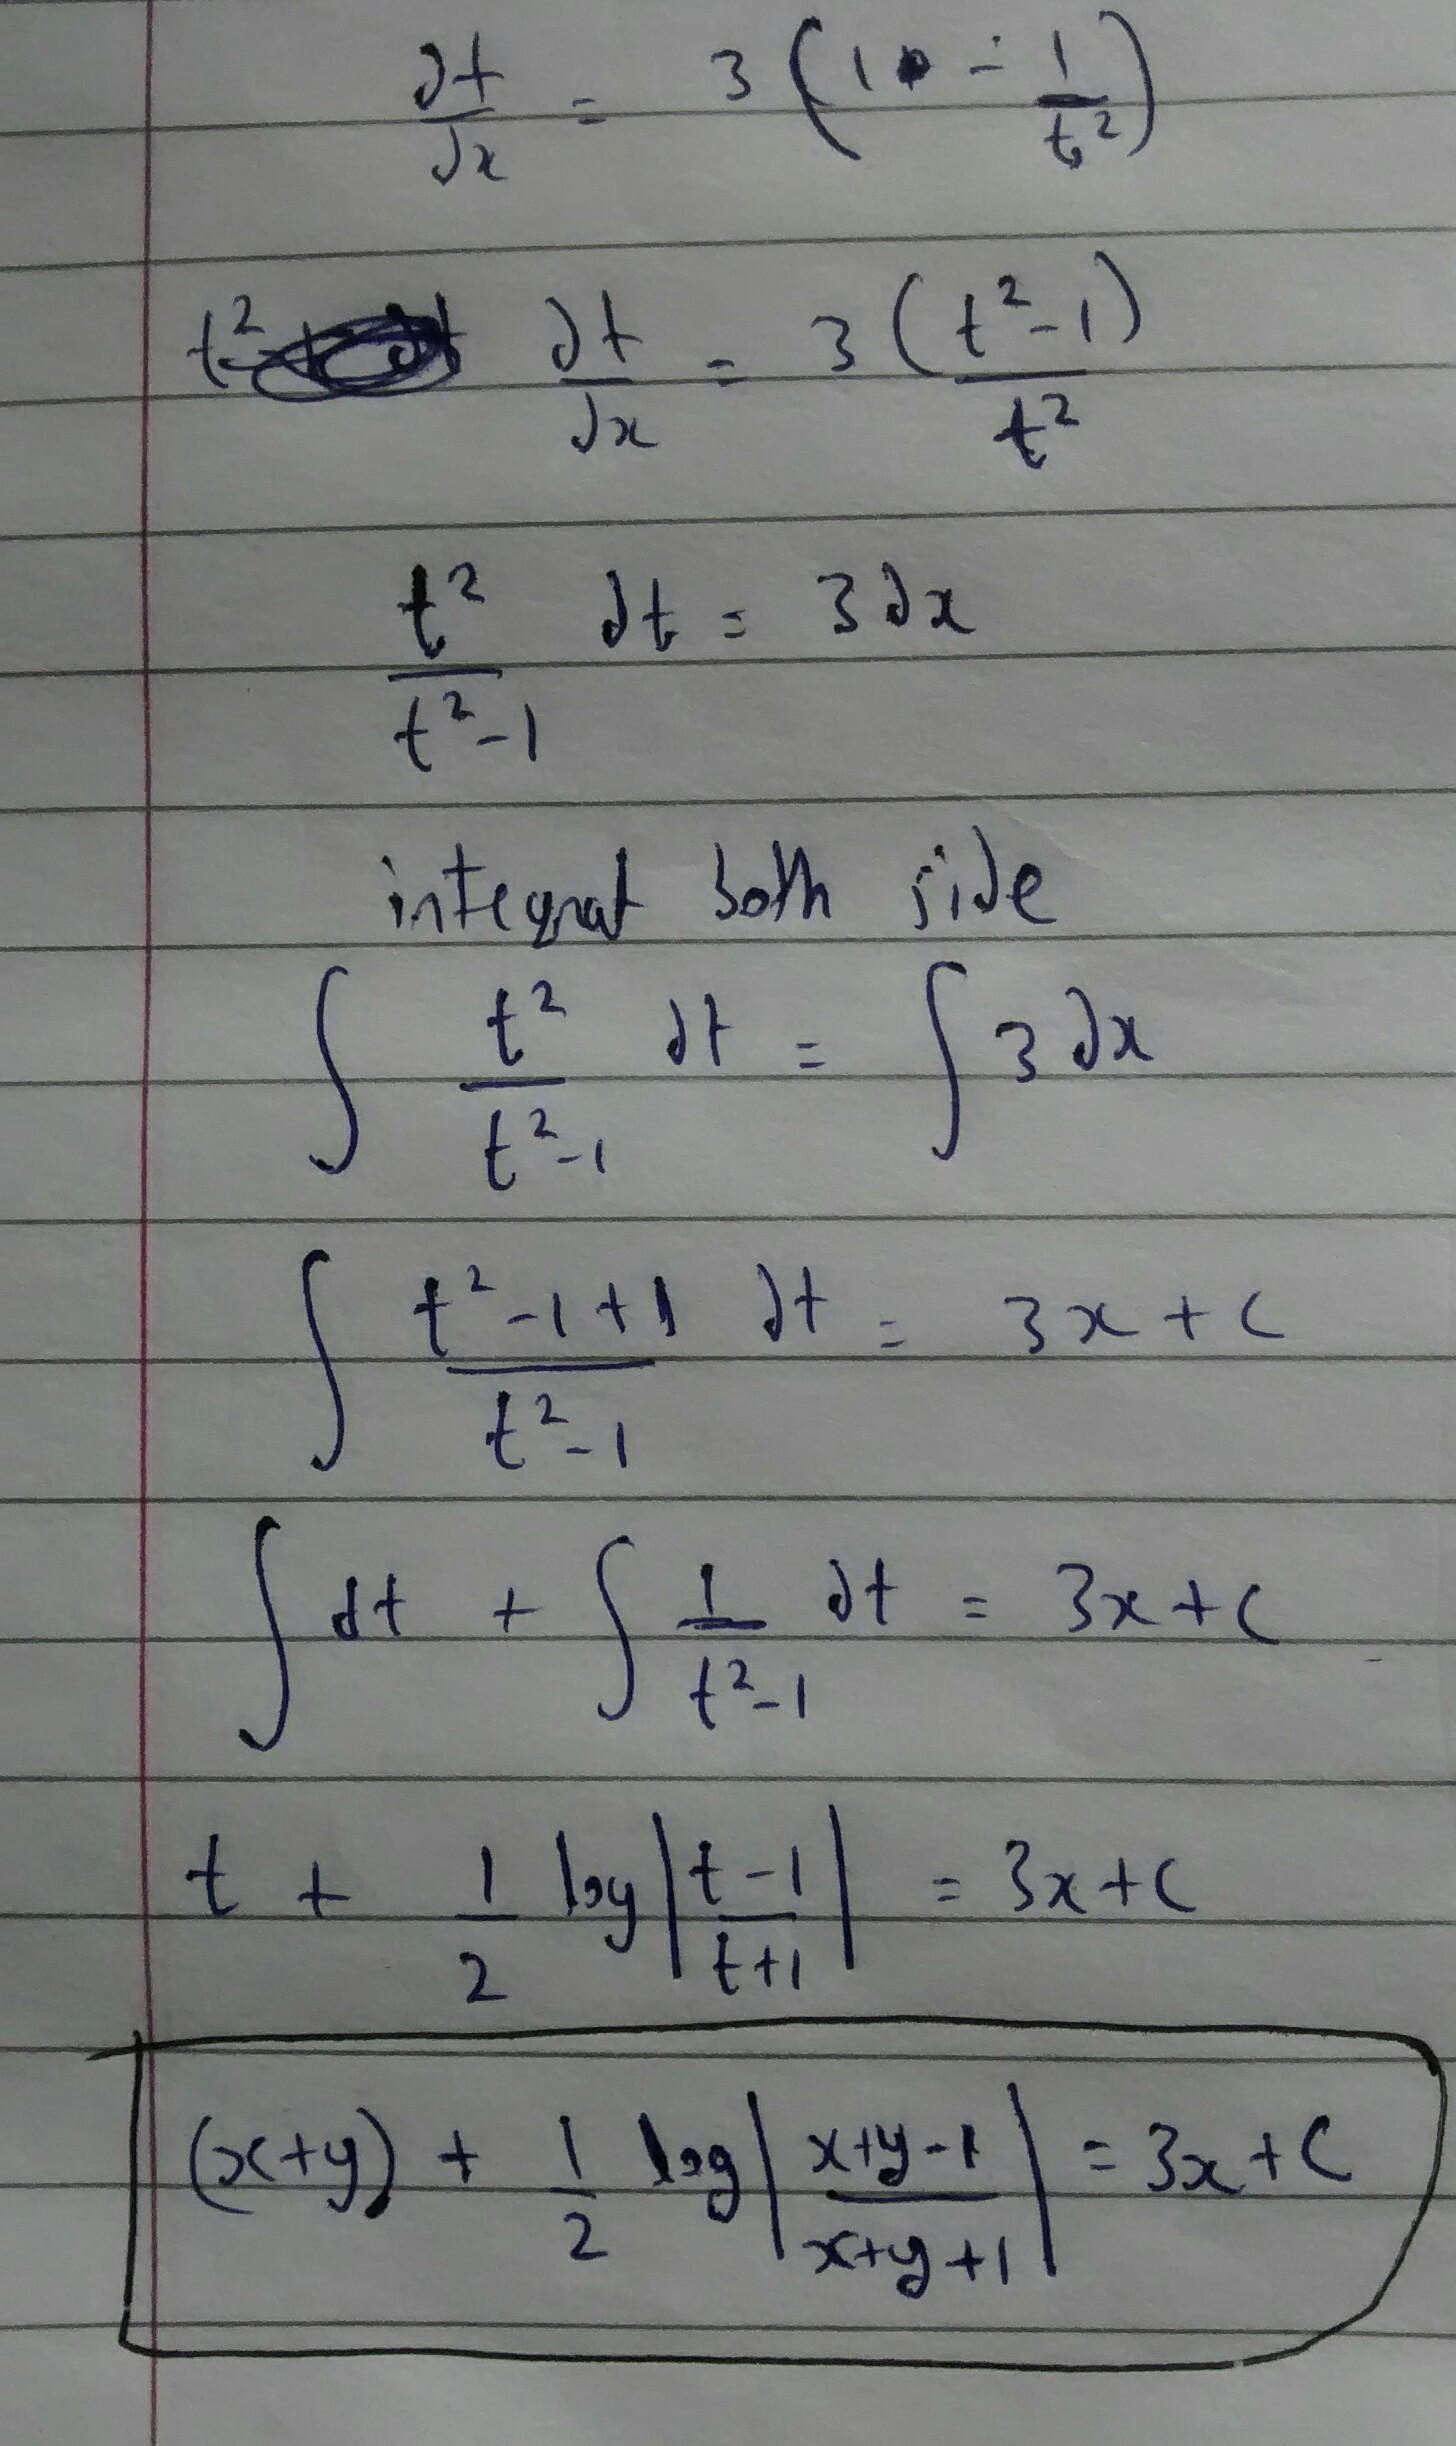 dt/dx = 3 (1 - 1/t²)
t² dt/dx = 3 (t²-1)/t²
t²/t²-1 dt = 3dx
integrat both side
∫ t²/t²-1 dt = ∫ 3dx
∫ t²-1+1/t²-1 dt = 3x+c
∫ dt + ∫ 1/t²-1 dt = 3x+c
t + 1/2 log|t-1/t+1| = 3x+c
(x+y) + 1/2 log|x+y-1/x+y+1| = 3x+c